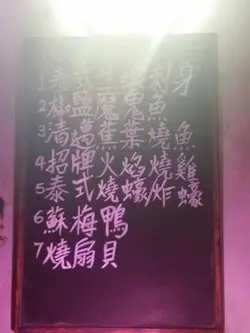 1泰式生蝦刺身
2椒鹽魔鬼魚
3清邁蕉葉燒魚
4招牌火焰燒雞
5泰式燒蠔/炸蠔
6蘇梅鴨
7燒扇貝